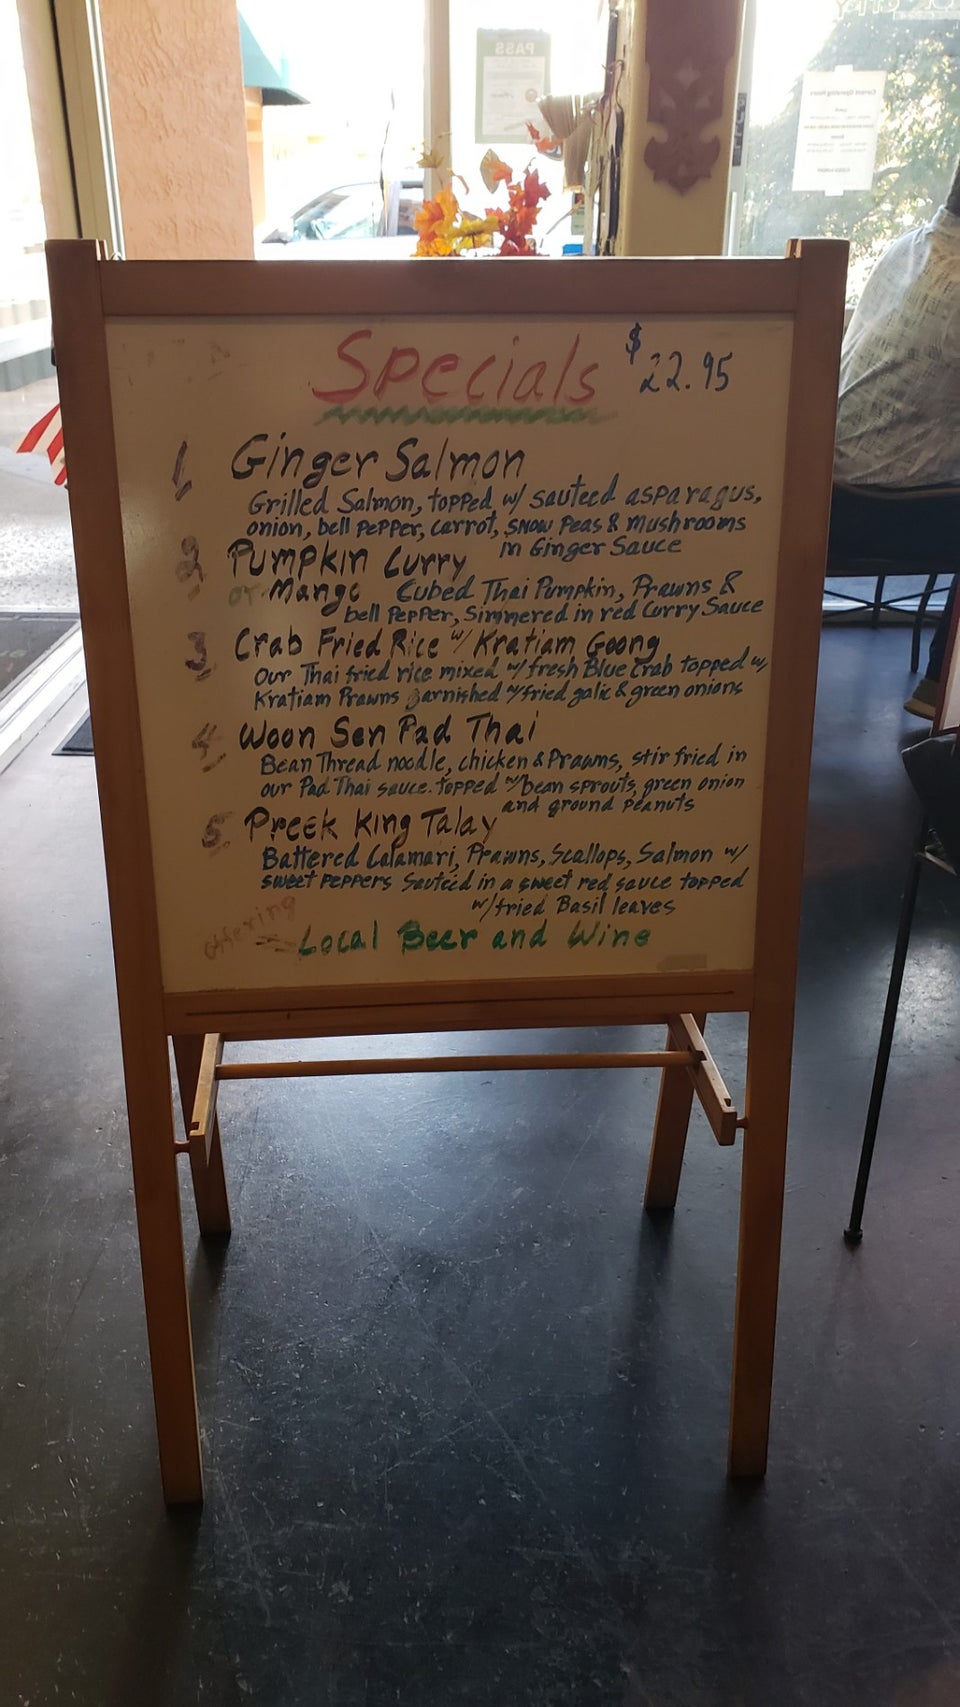 Specials $22.95
1 Ginger Salmon
Grilled Salmon, topped w/ sauteed asparagus,
onion, bell pepper, carrot, snow peas & mushrooms
in Ginger Sauce
2 Pumpkin Curry
or Mango Cubed Thai Pumpkin, Prawns &
bell pepper, simmered in red curry sauce
3 Crab Fried Rice w/ Kratiam Goong
Our Thai fried rice mixed w/ fresh Blue Crab topped w/
Kratiam Prawns garnished w/ fried galic & green onions
4 Woon Sen Pad Thai
Bean Thread noodle, chicken & Prawns, stir fried in
our Pad Thai sauce. topped w/ bean sprouts, green onion
and ground peanuts
5 Preek King Talay
Battered Calamari, Prawns, Scallops, Salmon w/
sweet peppers sauteéd in a sweet red sauce topped
w/ fried Basil leaves
offering
Local Beer and Wine
PASS
Current Operating Hours